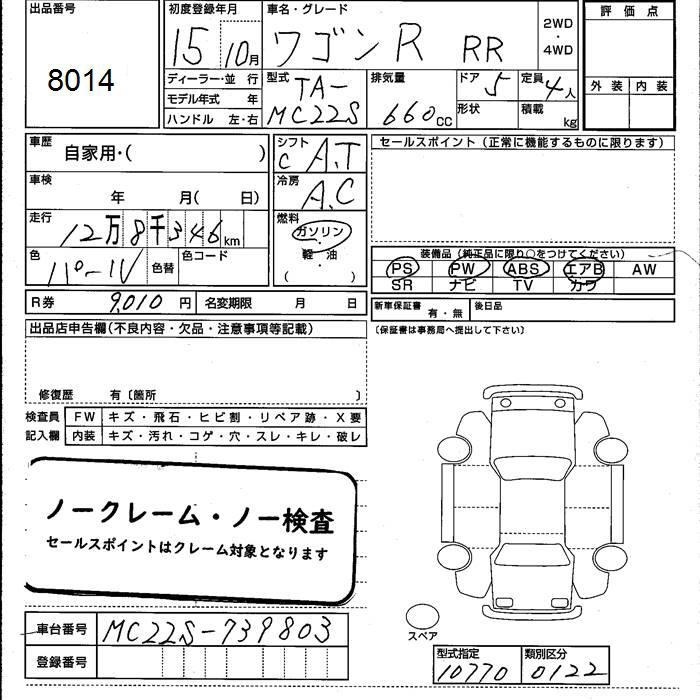 出品番号
8014
初度登録年月
15 10月
車名・グレード
ワゴンR RR
2WD
・
4WD
評価点
外装 内装
ディーラー・並 行
モデル年式 年
ハンドル 左・右
型式
TA-
MC22S
排気量
660cc
ドア 5
形状
定員 4人
積載 kg
車歴
自家用・( )
車検
年 月( 日)
走行
12万8千346km
色
パール
色替
色コード
シフト
C A.T
冷房
A.C
燃料
ガソリン
・
軽・油
( )
セールスポイント (正常に機能するものに限ります)
装備品 (純正品に限り○をつけてください)
PS PW ABS エアB AW
SR ナビ TV カワ
R券 9,010 円 名変期限 月 日
新車保証書
有・無
後日品
(保証書は事務局へ提出して下さい)
出品店申告欄(不良内容・欠品・注意事項等記載)
修復歴 有〔箇所 〕
検査員
記入欄
FW キズ・飛石・ヒビ割・リペア跡・X要
内装 キズ・汚れ・コゲ・穴・スレ・キレ・破レ
ノークレーム・ノー検査
セールスポイントはクレーム対象となります
スペア
車台番号 MC22S-739803
登録番号
型式指定 類別区分
10770 0122